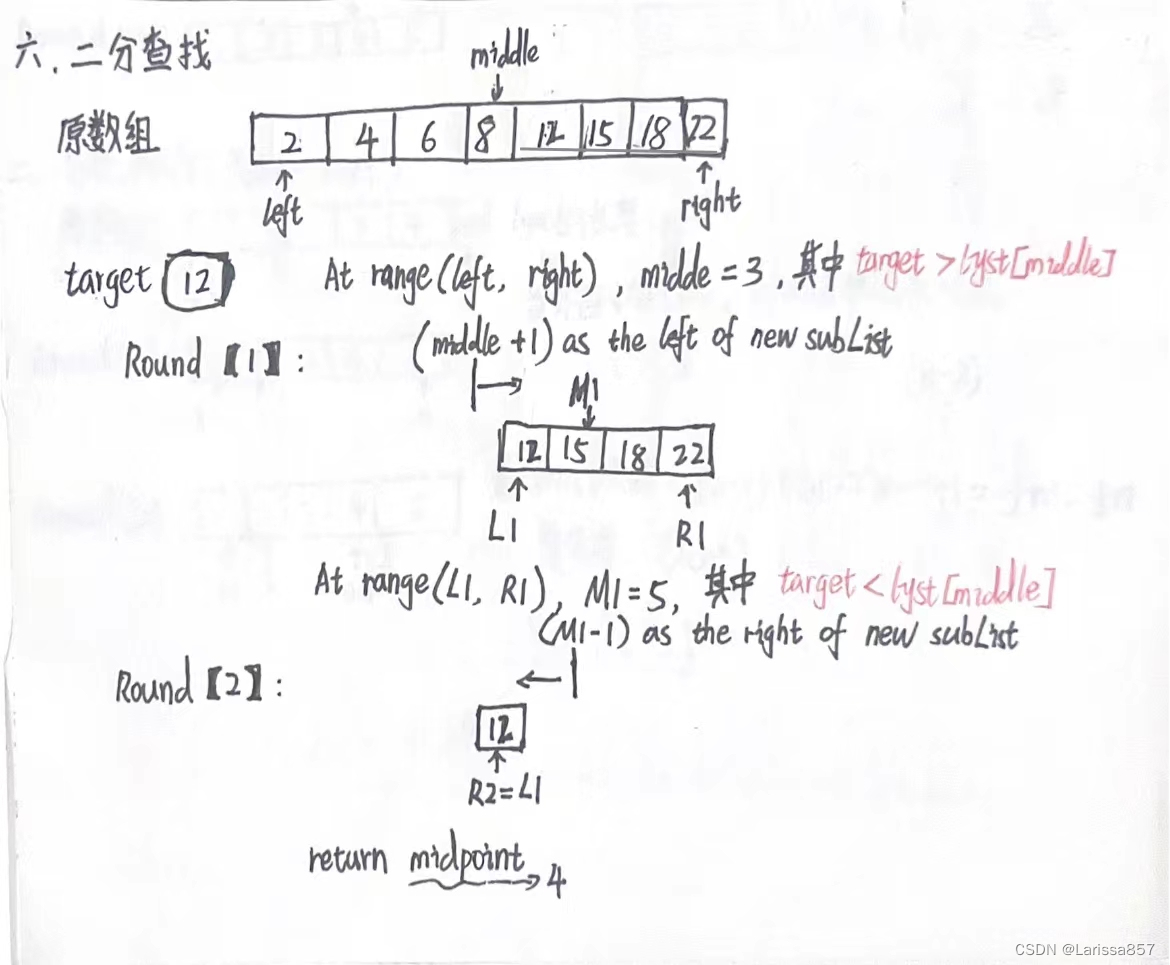 六.二分查找
middle
原数组
2 4 6 8 12 15 18 22
left
right
target 12 At range(left, right), midde=3, 其中 target>lyst[middle]
Round【1】: (middle+1) as the left of new subList
M1
12 15 18 22
L1 R1
At range(L1, R1), M1=5, 其中 target<lyst[middle]
(M1-1) as the right of new subList
Round【2】:
12
R2=L1
return midpoint 4
CSDN @Larissa857